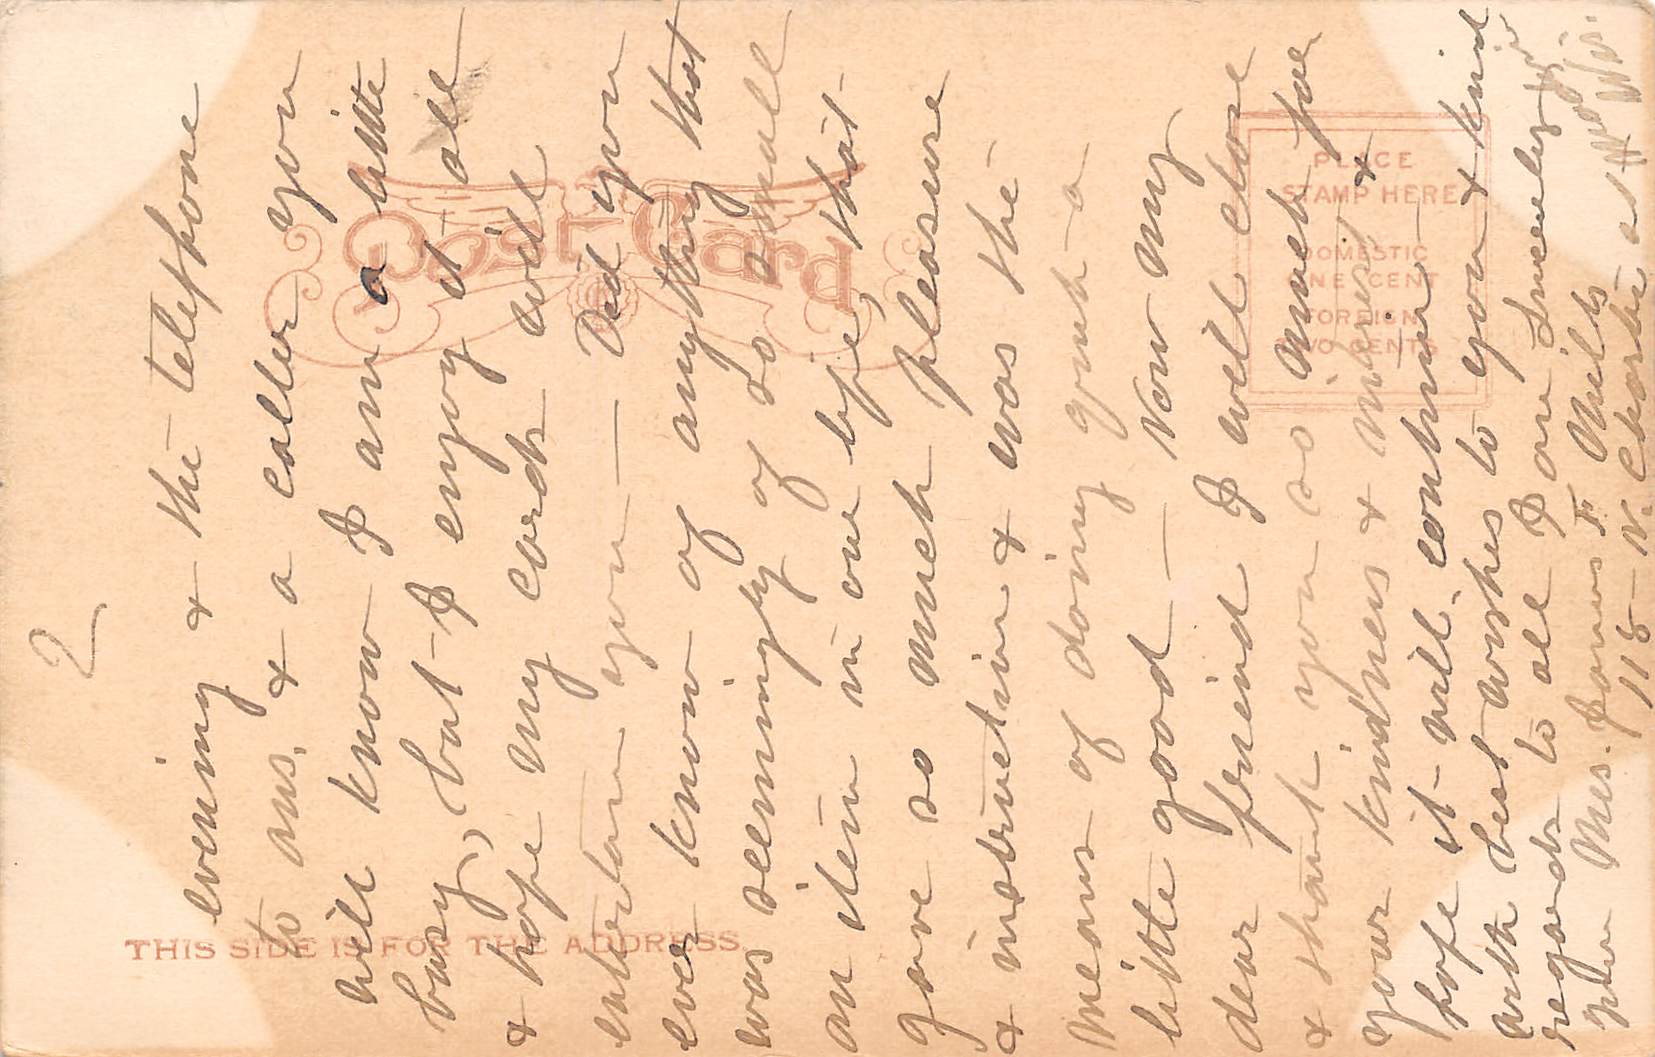 2
evening & the telephone
to ans, & a caller you
will know I am a little
busy, but I enjoy it all
& hope my cards will
entertain you — Did you
ever know of anything that
was seemingly of so small
an item in our life, that
gave so much pleasure
& instructive & was the
means of doing quite a
little good — Now my
dear friend I will close
& thank you so much for
your kindness & interest &
hope it will continue —
with best wishes to you & kind
regards to all I am Sincerely yr
new Mrs. James F Mills
118 N. Charter st
Wis.
POST CARD
THIS SIDE IS FOR THE ADDRESS.
PLACE
STAMP HERE
DOMESTIC
ONE CENT
FOREIGN
TWO CENTS